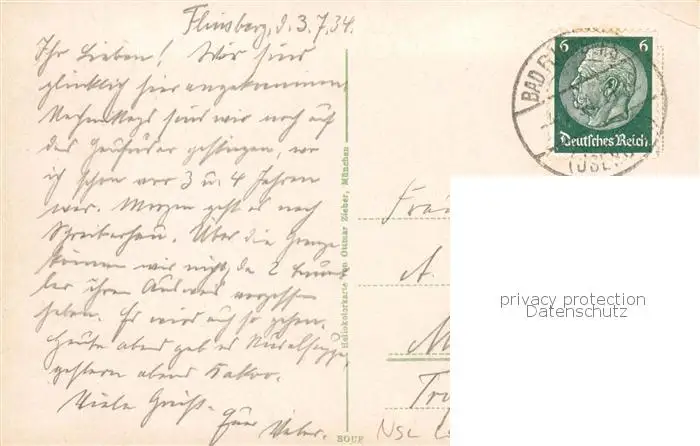 Flinsberg, d. 3.7.34.
Ihr Lieben! Wir sind
glücklich hier angekommen.
Nachmittags sind wir noch auf
das Heufuder gestiegen, wo
ich schon vor 3 u. 4 Jahren
war. Morgen geht es nach
Schreiberhau. Über die Grenze
können wir nicht, da 2
ihren Ausweis vergessen
haben. Es wird auch so gehen.
Heute abend gab es Nudelsuppe,
gestern abend Kakao.
Viele Grüße.
Euer
Heliokolorkarte von Ottmar Zieher, München
6 6
Deutsches Reich
BAD
(ISERG
A.
NSL
privacy protection
Datenschutz